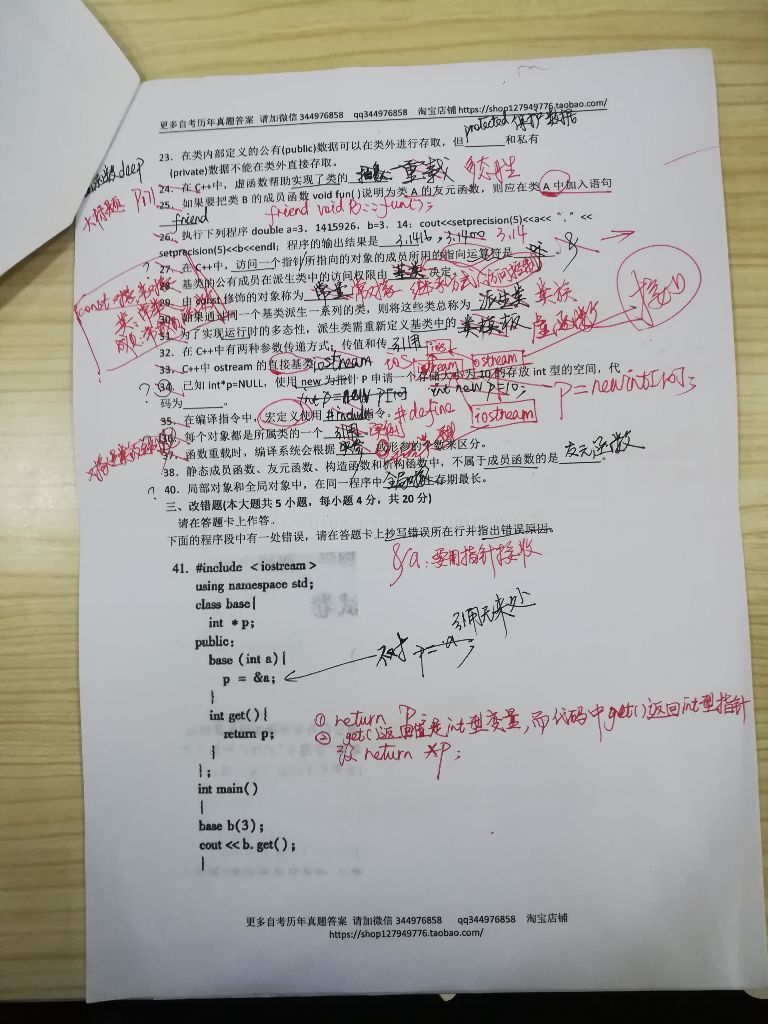 更多自考历年真题答案 请加微信 344976858 qq344976858 淘宝店铺 https://shop127949776.taobao.com/
protected 保护数据
23. 在类内部定义的公有(public)数据可以在类外进行存取，但 和私有
(private)数据不能在类外直接存取。
deep
24. 在 C++中，虚函数帮助实现了类的 重载 多态性
25. 如果要把类 B 的成员函数 void fun()说明为类 A 的友元函数，则应在类 A 中加入语句
friend friend void B::fun();
26. 执行下列程序 double a=3. 1415926, b=3. 14; cout<<setprecision(5)<<a<< "," <<
setprecision(5)<<b<<endl; 程序的输出结果是 3.1416, 3.1400 3.14
27. 在 C++中，访问一个指针所指向的对象的成员所用的指向运算符是 。 &
28. 基类的公有成员在派生类中的访问权限由 基类 决定。 继承方式(访问控制)
29. 由 const 修饰的对象称为 常量 常对象
30. 如果通过同一个基类派生一系列的类，则将这些类总称为 派生类 类族
31. 为了实现运行时的多态性，派生类需重新定义基类中的 虚函数
32. 在 C++中有两种参数传递方式：传值和传 引用
33. C++中 ostream 的直接基类 iostream ios iostream
34. 已知 int*p=NULL，使用 new 为指针 p 申请一个存储大小为 10 的存放 int 型的空间，代
码为 。 p=new int[10];
iostream
35. 在编译指令中，宏定义使用 #include 指令。 #define
36. 每个对象都是所属类的一个 引用 实例
37. 函数重载时，编译系统会根据 或形参的个数来区分。
38. 静态成员函数、友元函数、构造函数和析构函数中，不属于成员函数的是 友元函数 。
40. 局部对象和全局对象中，在同一程序中 生存期最长。
三、改错题(本大题共 5 小题，每小题 4 分，共 20 分)
请在答题卡上作答．
下面的程序段中有一处错误，请在答题卡上抄写错误所在行并指出错误原因。
&a：要用指针接收
41. #include <iostream>
using namespace std;
class base{
int *p;
public:
base (int a){
p = &a;
不对 p=a; 引用无来处
}
int get(){
return p;
}
① return p
② get()返回值是int型变量，而代码中get()返回int型指针
没 return *p;
};
int main()
{
base b(3);
cout <<b. get();
}
更多自考历年真题答案 请加微信 344976858 qq344976858 淘宝店铺
https://shop127949776.taobao.com/